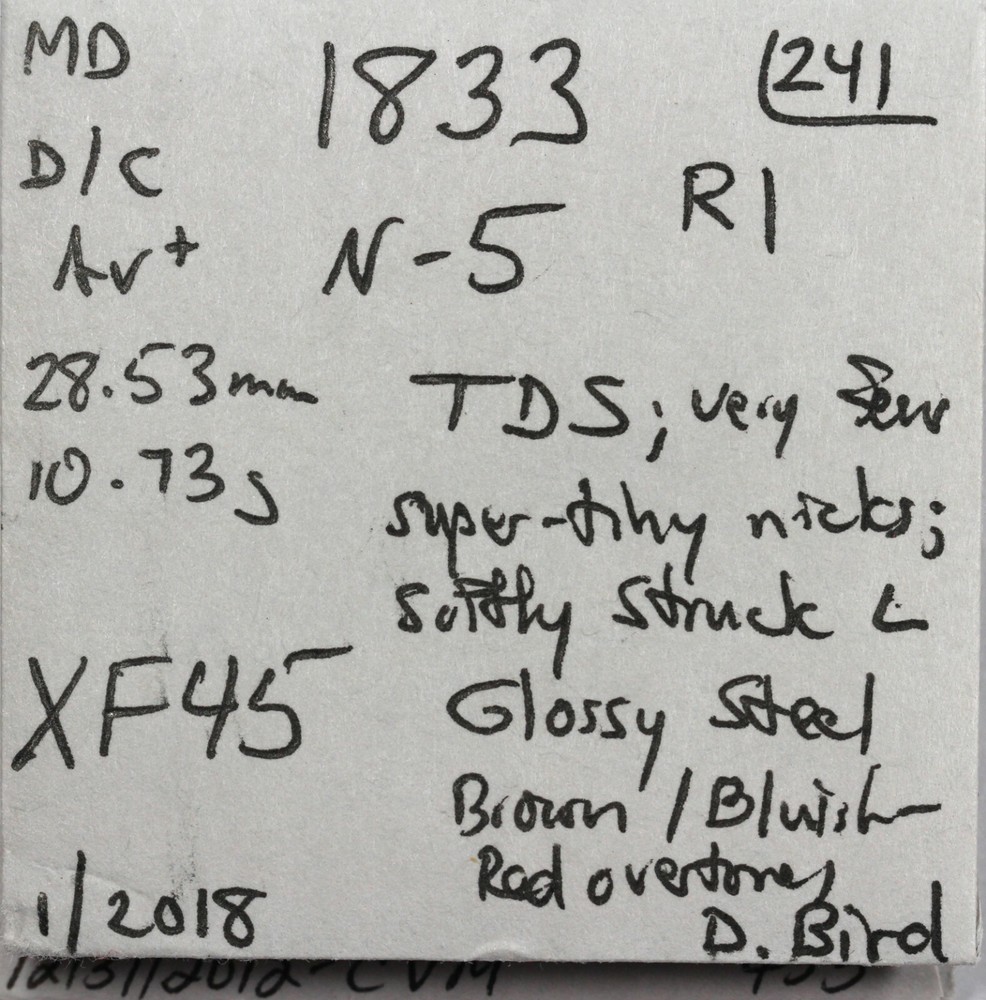 MD 1833 241
D/C R1
Av+ N-5
28.53mm TDS; very few
10.73g super-tiny nicks;
softly struck L
XF45 Glossy Steel
Brown / Bluish-
Red overtones
1/2018 D. Bird
12/31/2012 CVM